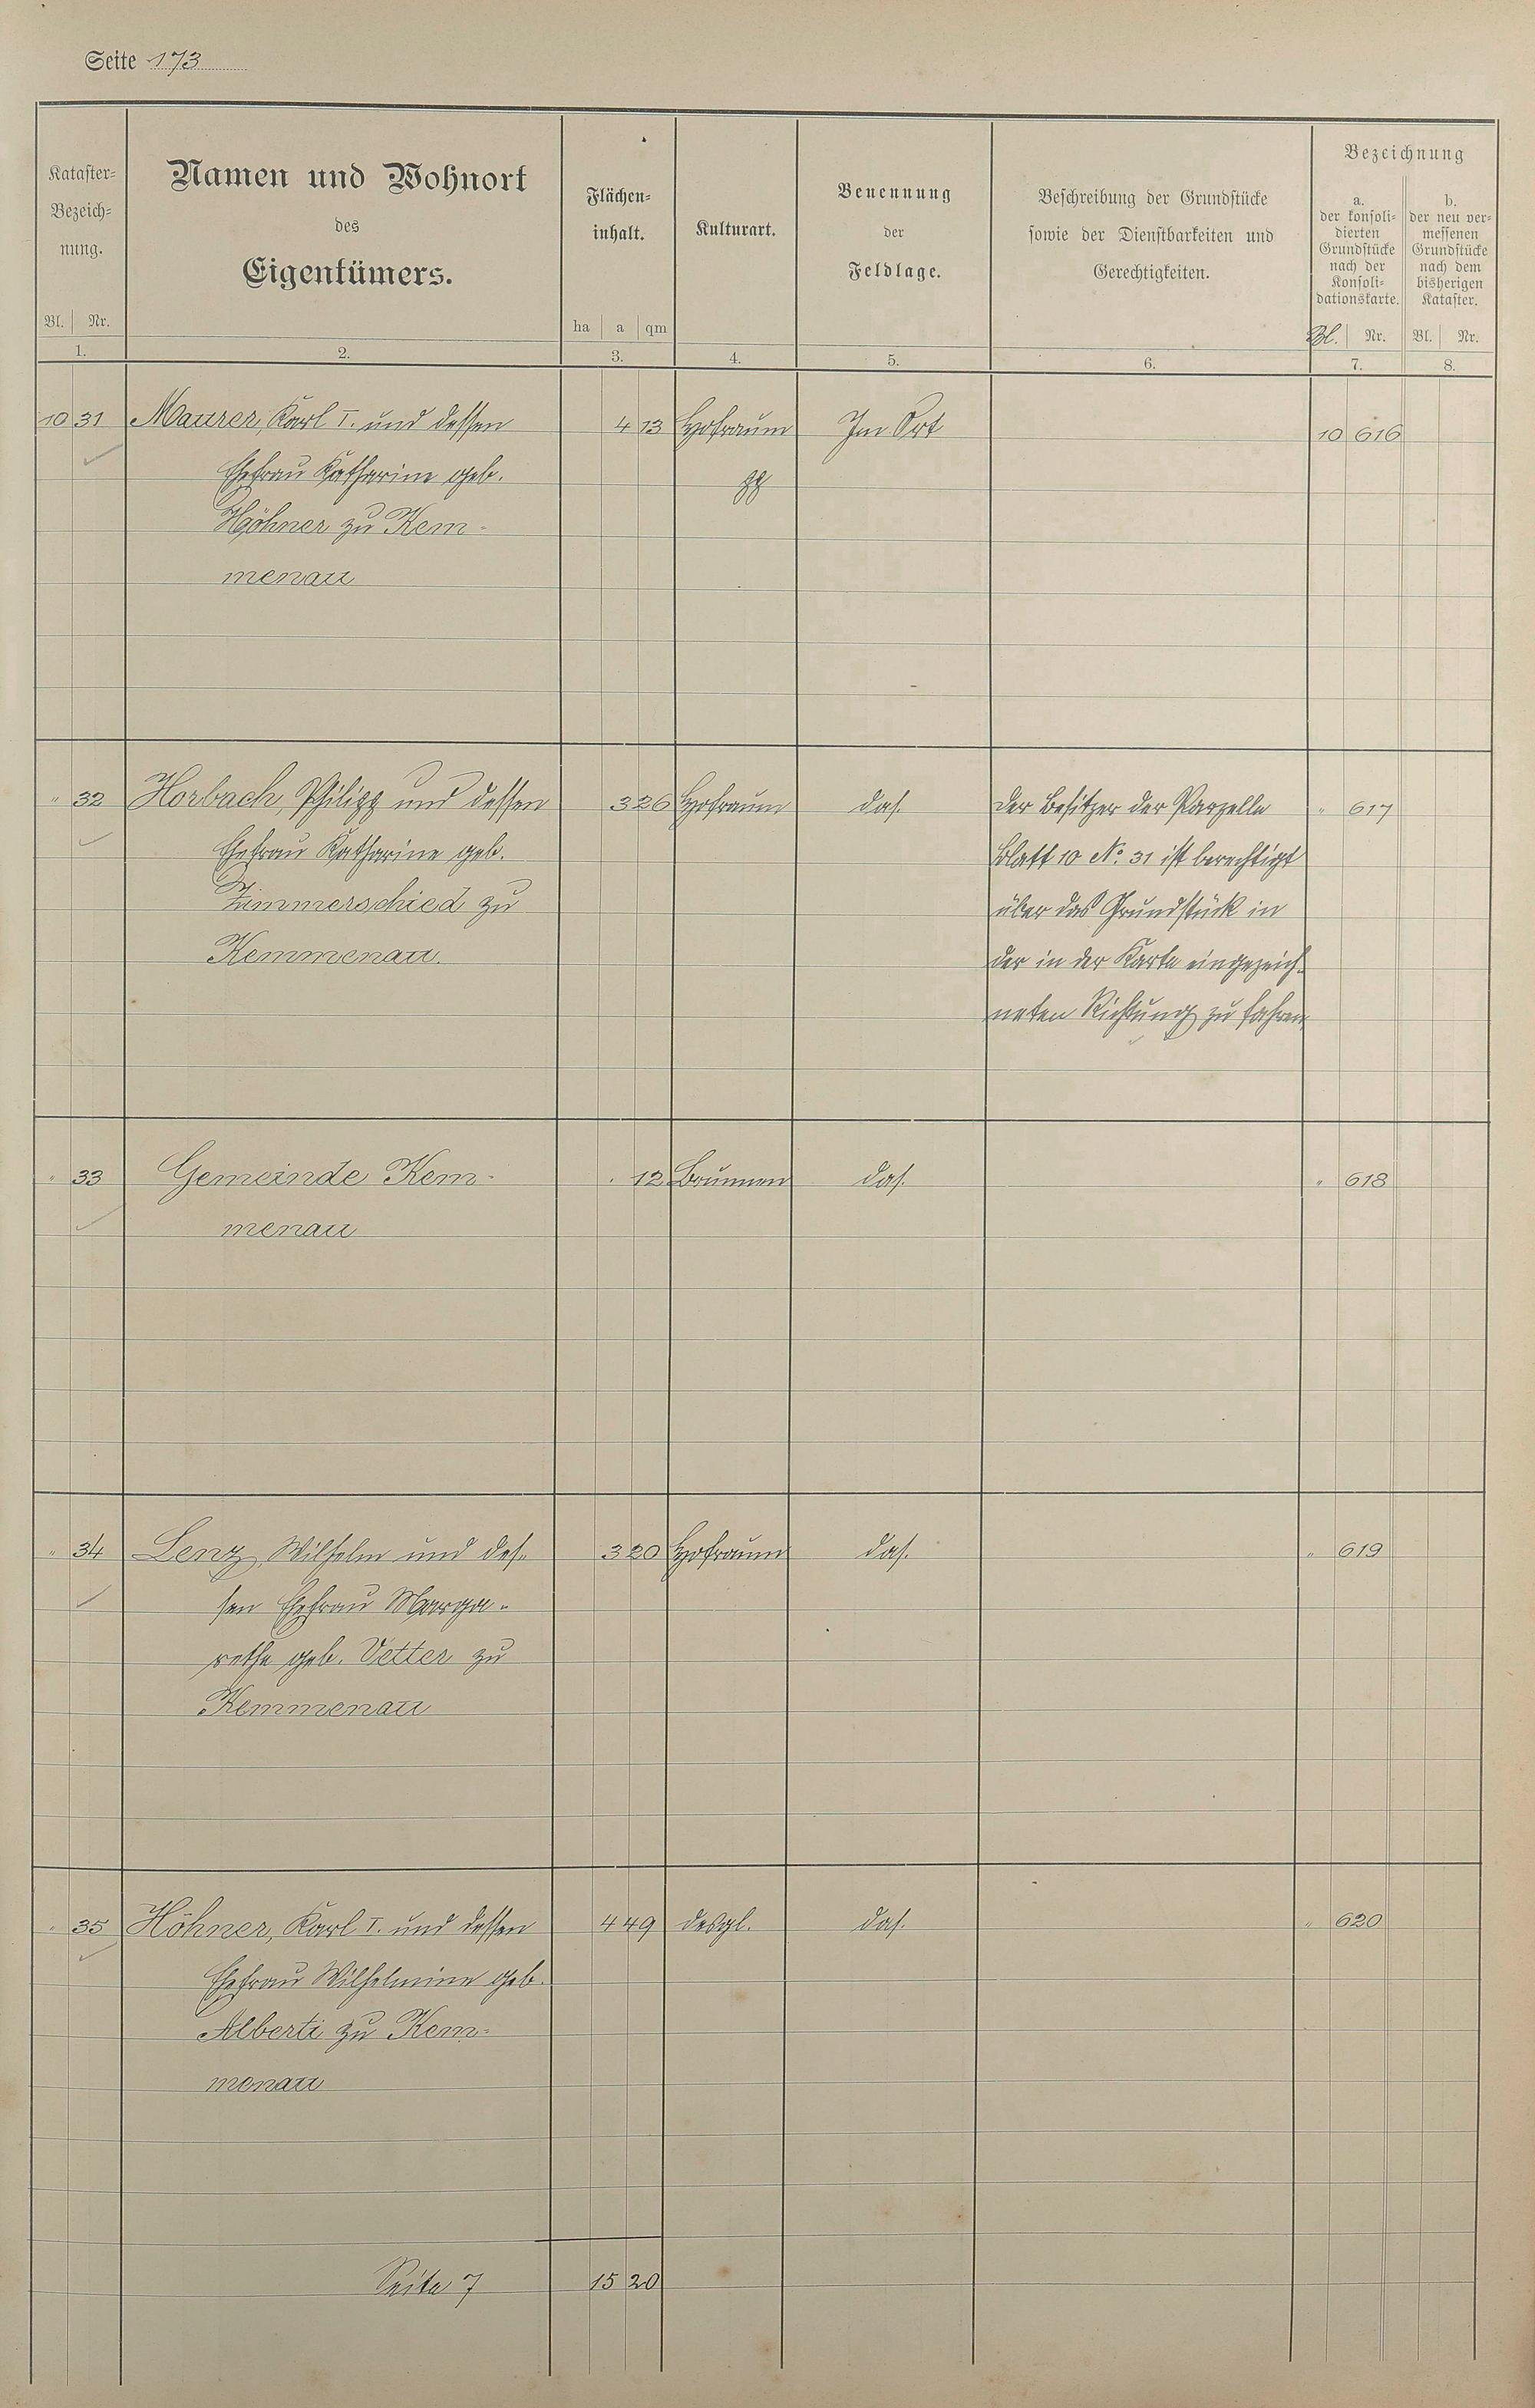 Seite 173
Kataster-
Bezeich-
nung.
Bl. Nr.
1.
Namen und Wohnort
des
Eigentümers.
2.
Flächen-
inhalt.
ha a qm
3.
Kulturart.
4.
Benennung
der
Feldlage.
5.
Beschreibung der Grundstücke
sowie der Dienstbarkeiten und
Gerechtigkeiten.
6.
Bezeichnung
a.
der konsoli-
dierten
Grundstücke
nach der
Konsoli-
dationskarte.
Bl. Nr.
7.
b.
der neu ver-
messenen
Grundstücke
nach dem
bisherigen
Kataster.
Bl. Nr.
8.
10 31 Maurer, Karl I. und dessen 4 13 Hofraum Im Ort 10 616
Ehefrau Katharine geb.
Höhner zu Kem-
menau
" 32 Horbach, Philipp und dessen 3 26 Hofraum das. Der Besitzer der Parzelle " 617
Ehefrau Katharine geb. Blatt 10 No. 31 ist berechtigt
Zimmerschied zu über das Grundstück in
Kemmenau. der in der Karte eingezeich-
neten Richtung zu fahren
" 33 Gemeinde Kem- . 12 Brunnen das. " 618
menau
" 34 Lenz, Wilhelm und des- 3 20 Hofraum das. " 619
sen Ehefrau Marga-
rethe geb. Vetter zu
Kemmenau
" 35 Höhner, Karl I. und dessen 4 49 desgl. das. " 620
Ehefrau Wilhelmine geb.
Alberti zu Kem-
menau
Seite 7 15 20